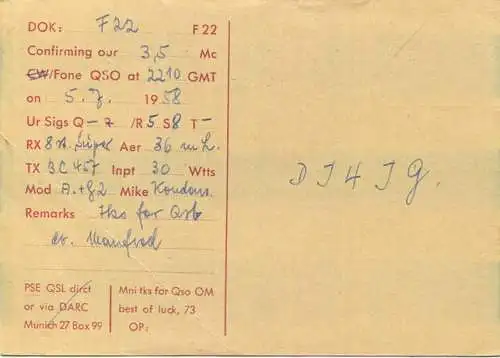 DOK: F22 F 22
Confirming our 3,5 Mc
CW/Fone QSO at 2210 GMT
on 5. 7. 1958
Ur Sigs Q- /R 5 S 8 T-
RX 8 Aer 36 m L.
TX BC 457 Inpt 30 Wtts
Mod A.+G2 Mike Kondens.
Remarks tks for Qso
dr. Manfred
DJ4JG.
PSE QSL dirct
or via DARC
Munich 27 Box 99
Mni tks for Qso OM
best of luck, 73
OP: